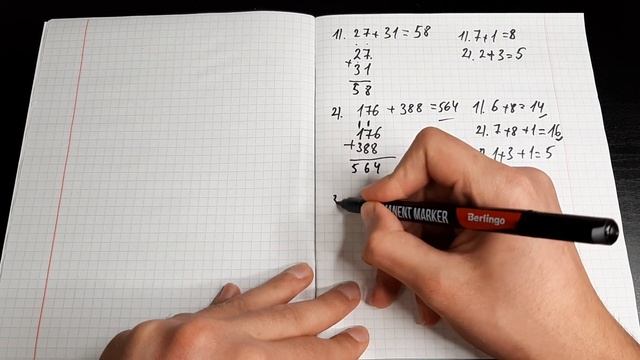 1). 27+31=58
1). 7+1=8
27
2). 2+3=5
+31
58
2). 176+388=564
1). 6+8=14
176
2). 7+8+1=16
+388
1+3+1=5
564
MANENT MARKER Berlingo